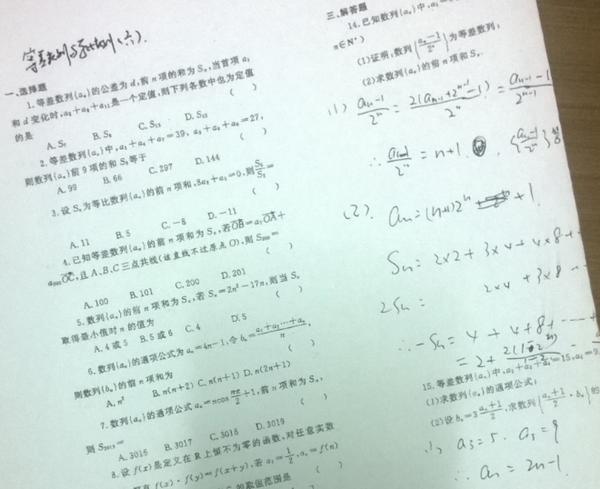 一、选择题
1.等差数列{aₙ}的公差为d,前n项的和为Sₙ,当首项a₁
和d变化时,a₂+a₈+a₁₁是一个定值,则下列各数中也为定值
的是 ( )
A.S₇ B.S₈ C.S₁₃ D.S₁₅
2.等差数列{aₙ}中,a₁+a₄+a₇=39,a₃+a₆+a₉=27,
则数列{aₙ}前9项的和S₉等于 ( )
A.99 B.66 C.297 D.144
3.设Sₙ为等比数列{aₙ}的前n项和,8a₂+a₅=0,则S₅/S₂=
( )
A.11 B.5 C.-8 D.-11
4.已知等差数列{aₙ}的前n项和为Sₙ,若OB=a₁OA+
a₂₀₀OC,且A、B、C三点共线(该直线不过原点O),则S₂₀₀=
( )
A.100 B.101 C.200 D.201
5.数列{aₙ}的前n项和为Sₙ,若Sₙ=2n²-17n,则当Sₙ
取得最小值时n的值为 ( )
A.4或5 B.5或6 C.4 D.5
6.数列{aₙ}的通项公式为aₙ=4n-1,令bₙ=(a₁+a₂+…+aₙ)/n,
则数列{bₙ}的前n项和为 ( )
A.n² B.n(n+2) C.n(n+1) D.n(2n+1)
7.数列{aₙ}的通项公式aₙ=ncos(nπ/2)+1,前n项和为Sₙ,
则S₂₀₁₂= ( )
A.3015 B.3017 C.3018 D.3019
8.设f(x)是定义在R上恒不为零的函数,对任意实数
f(x)·f(y)=f(x+y),若a₁=1/2,aₙ=f(n)
的取值范围是 ( )
三、解答题
14.已知数列{aₙ}中,a₁
n∈N*)
(1)证明:数列{(aₙ-1)/2ⁿ}为等差数列;
(2)求数列{aₙ}的前n项和Sₙ.
(1) (aₙ-1)/2ⁿ = 2(aₙ₋₁+2ⁿ⁻¹-1)/2ⁿ = (aₙ₋₁-1)/2ⁿ⁻¹
∴ (aₙ-1)/2ⁿ = n+1. {(aₙ-1)/2ⁿ}
(2). aₙ=(n+1)2ⁿ +1
Sₙ= 2×2+3×4+4×8+
2Sₙ= 2×4+3×8
∴-Sₙ= 4+4+8+……
15.等差数列{aₙ}中,
(1)求数列{aₙ}的通项公式;
(2)设bₙ=3^((aₙ+1)/2),求数列{(aₙ+1)/2·bₙ}的
a₃=5. a₅=9
∴ aₙ=2n-1